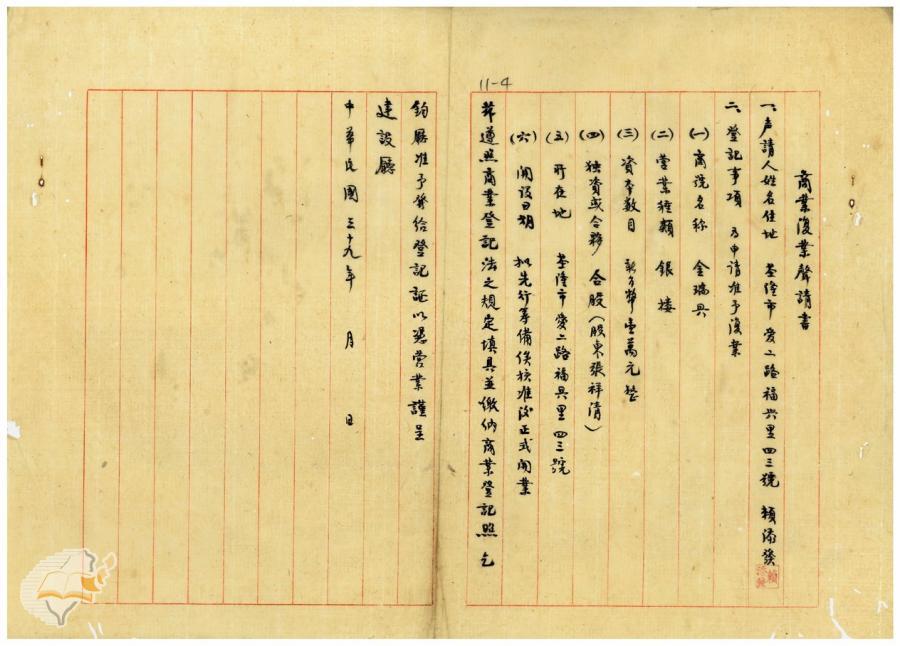 11-4
商業復業聲請書
一、声請人姓名住地 基隆市愛二路福興里四三號 賴添發
二、登記事項 乃申請准予復業
(一) 商號名称 金瑞興
(二) 營業種類 銀樓
(三) 資本数目 新台幣壹萬元整
(四) 独資或合夥 合股(股東張祥清)
(五) 所在地 基隆市愛二路福興里四三號
(六) 開設日期 拟先行筹備俟核准後正式開業
茲遵照商業登記法之規定填具並繳納商業登記照乞
鈞廳准予發給登記証以憑營業謹呈
建設廳
中華民國三十九年 月 日